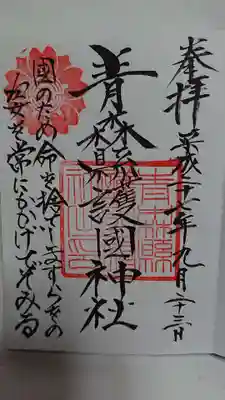 奉拝 平成二十一年九月二十三日
青森縣護國神社
國のため命を捨てしますらをの
姿を常にかかげてぞみる